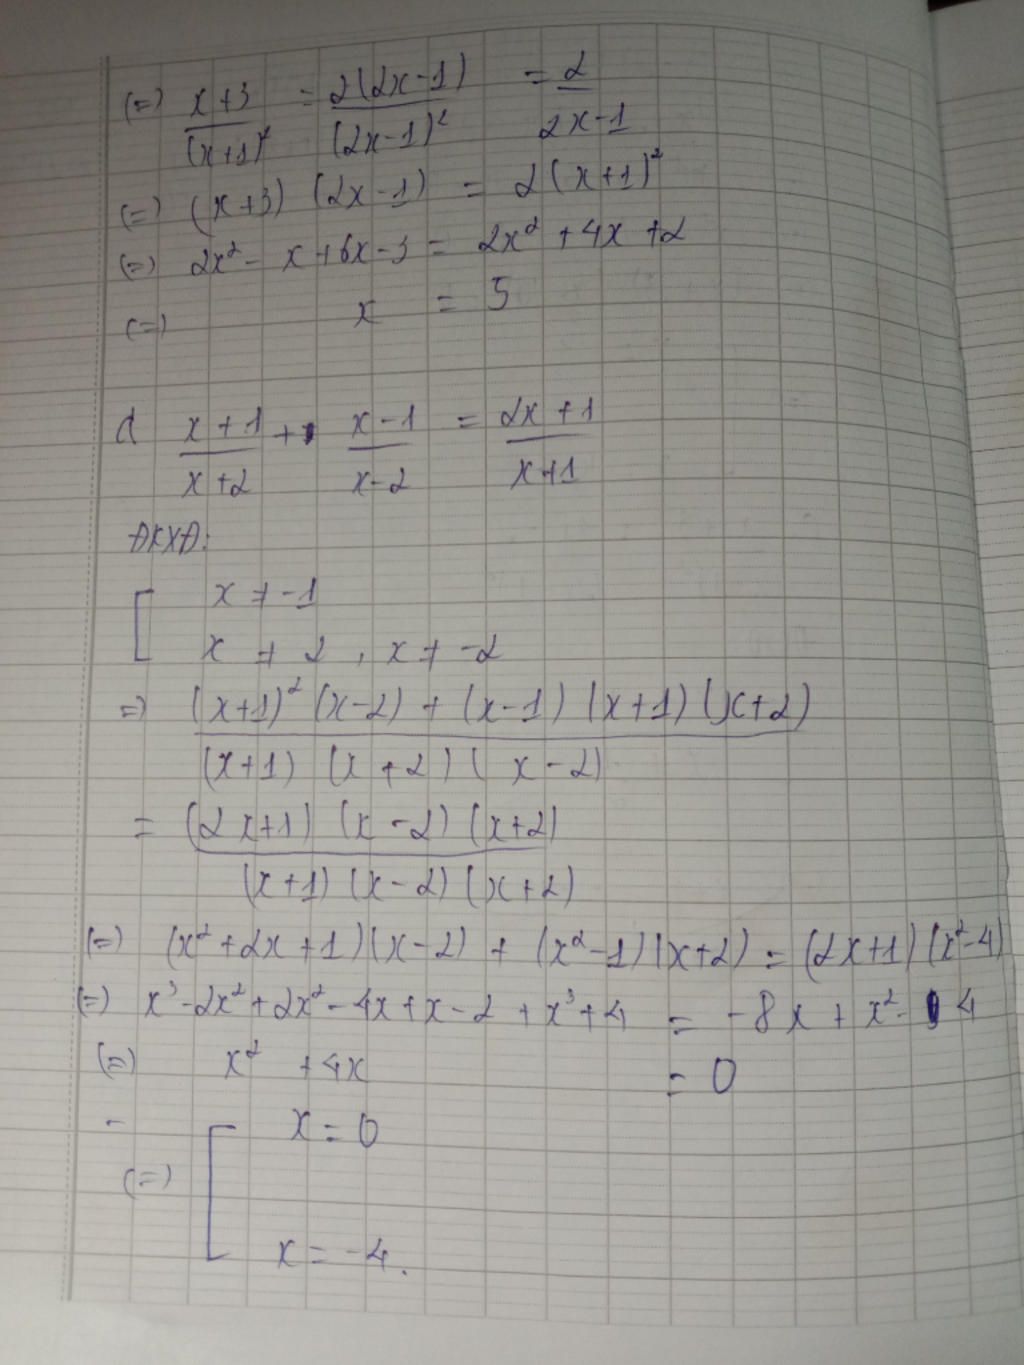 (=) x+3/(x+1)² = 2(2x-1)/(2x-1)² = 2/2x-1
(=) (x+3) (2x-1) = 2(x+1)²
(=) 2x² - x+6x-3 = 2x² + 4x +2
(=) x = 5
d x+1/x+2 + x-1/x-2 = 2x+1/x+1
ĐKXĐ:
[ x ≠ -1
x ≠ 2, x ≠ -2
=) (x+1)² (x-2) + (x-1) (x+1) (x+2)
(x+1) (x+2) (x-2)
= (2x+1) (x-2) (x+2)
(x+1) (x-2) (x+2)
(=) (x²+2x+1)(x-2) + (x²-1)(x+2) = (2x+1)(x²-4)
(=) x³-2x²+2x²-4x+x-2+x³+4 = -8x+x²-4
(=) x² +4x = 0
-
(=) [ x = 0
x = -4.